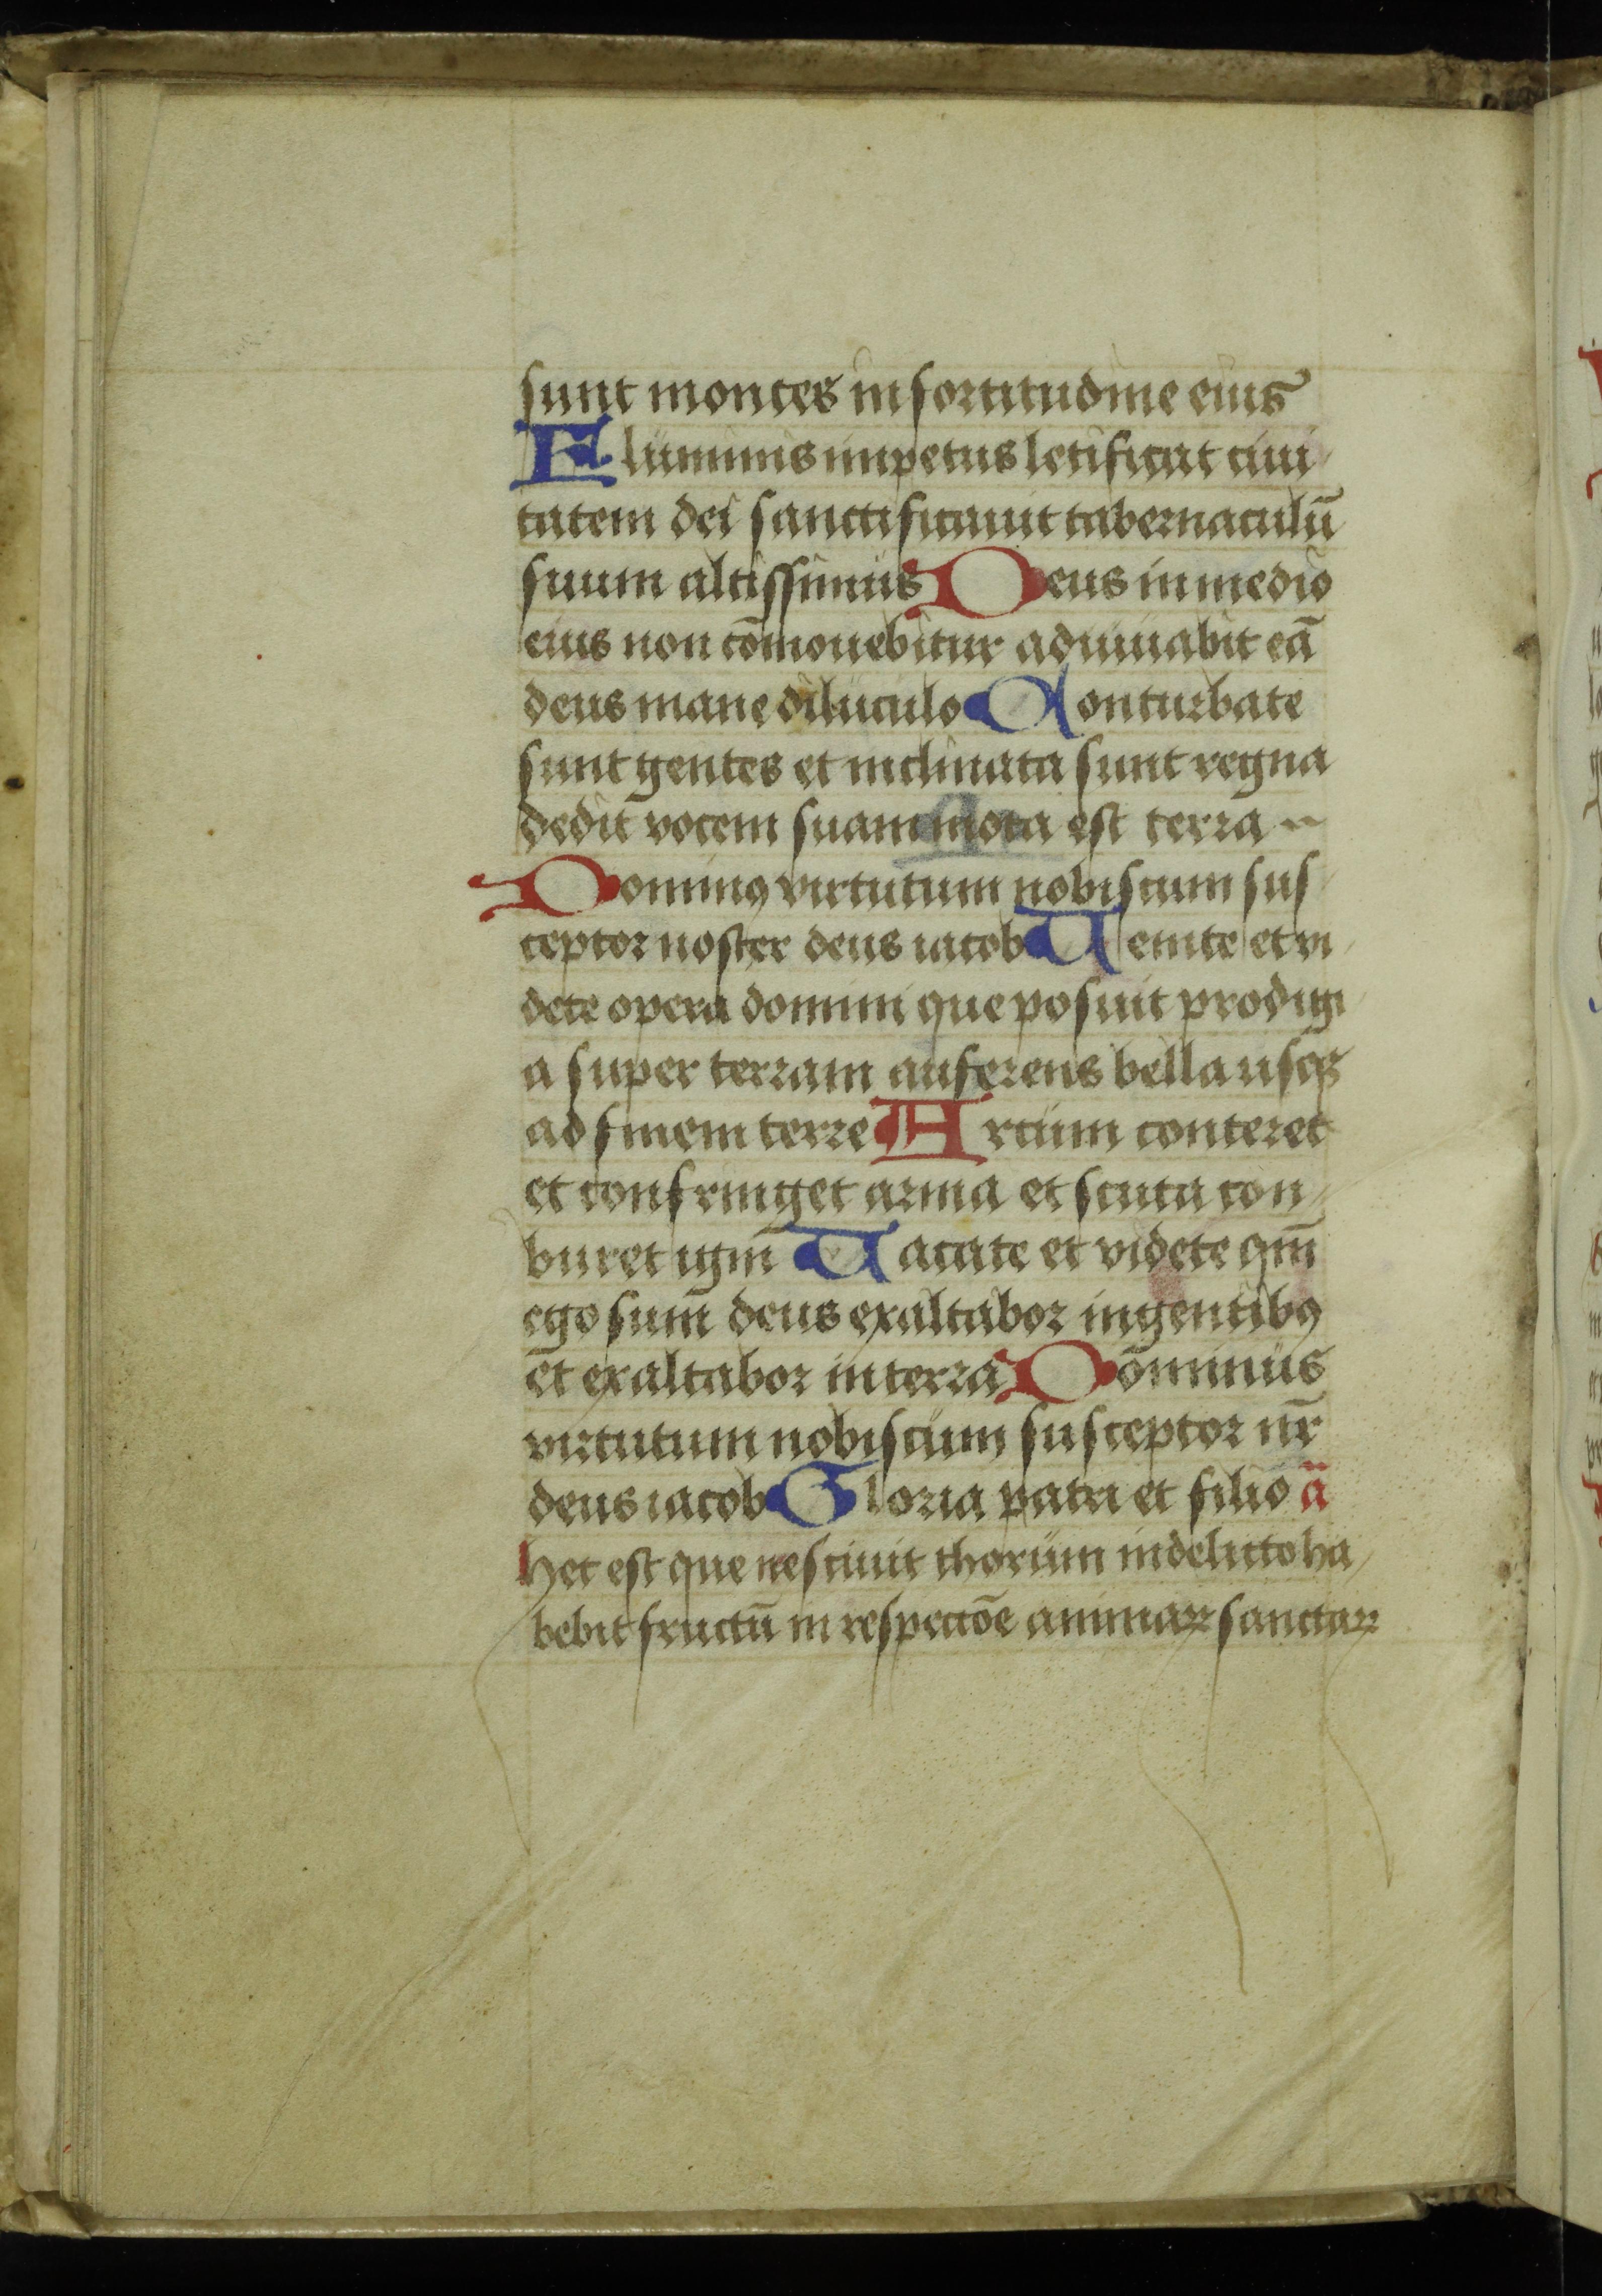 sunt montes in fortitudine eius
Fluminis impetus letificat ciui
tatem dei sanctificauit tabernaculū
suum altissimus Deus in medio
eius non cōmouebitur adiuuabit eā
deus mane diluculo Conturbate
sunt gentes et inclinata sunt regna
dedit vocem suam mota est terra
Dominꝰ virtutum nobiscum sus
ceptor noster deus iacob Uenite et vi
dete opera domini que posuit prodigi
a super terram auferens bella usqꝫ
ad finem terre Arcum conteret
et confringet arma et scuta con
buret igni Uacate et videte qm̄
ego sum deus exaltabor in gentibꝰ
et exaltabor in terra Dominus
virtutum nobiscum susceptor nr̄
deus iacob Gloria patri et filio ā
Hec est que nesciuit thorum in delicto ha
bebit fructū in respectōe animaꝝ sanctaꝝ